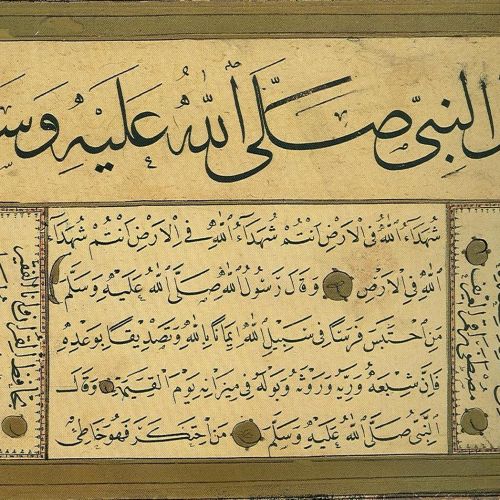 النَّبِىِّ صَلَّى اللهُ عَلَيْهِ وَسَ
شُهَدَآءُ اللهِ فِى الْاَرْضِ اَنْتُمْ شُهَدَآءُ اللهِ فِى الْاَرْضِ اَنْتُمْ شُهَدَآءُ
اللهِ فِى الْاَرْضِ وَقَالَ رَسُولُ اللهِ صَلَّى اللهُ عَلَيْهِ وَسَلَّمَ
مَنْ احْتَبَسَ فَرَسًا فِى سَبِيلِ اللهِ اِيمَانًا بِاللهِ وَتَصْدِيقًا بِوَعْدِهِ
فَاِنَّ شِبَعَهُ وَرِيَّهُ وَرَوْثَهُ وَبَوْلَهُ فِى مِيزَانِهِ يَوْمَ الْقِيٰمَةِ وَقَالَ
النَّبِىُّ صَلَّى اللهُ عَلَيْهِ وَسَلَّمَ مَنْ احْتَكَرَ فَهُوَ خَاطِئٌ
مصطفى المعروف
بحافظ القرآن الفقير